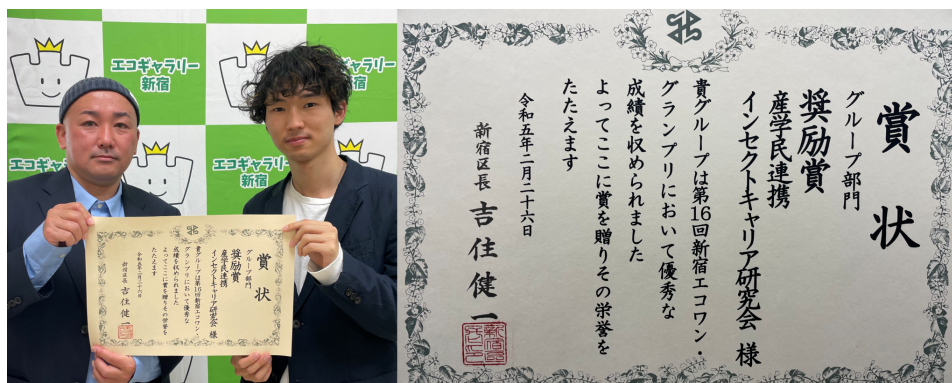 エコギャラリー
新宿
エコギャラリー
新宿
エコギャラリー
新宿
賞状
グループ部門
奨励賞
産学民連携
インセクトキャリア研究会 様
貴グループは第16回新宿エコワン・
グランプリにおいて優秀な
成績を収められました
よってここに賞を贈りその栄誉を
たたえます
令和五年二月二十六日
新宿区長 吉住健一
賞状
グループ部門
奨励賞
産学民連携
インセクトキャリア研究会 様
貴グループは第16回新宿エコワン・
グランプリにおいて優秀な
成績を収められました
よってここに賞を贈りその栄誉を
たたえます
令和五年二月二十六日
新宿区長 吉住健一